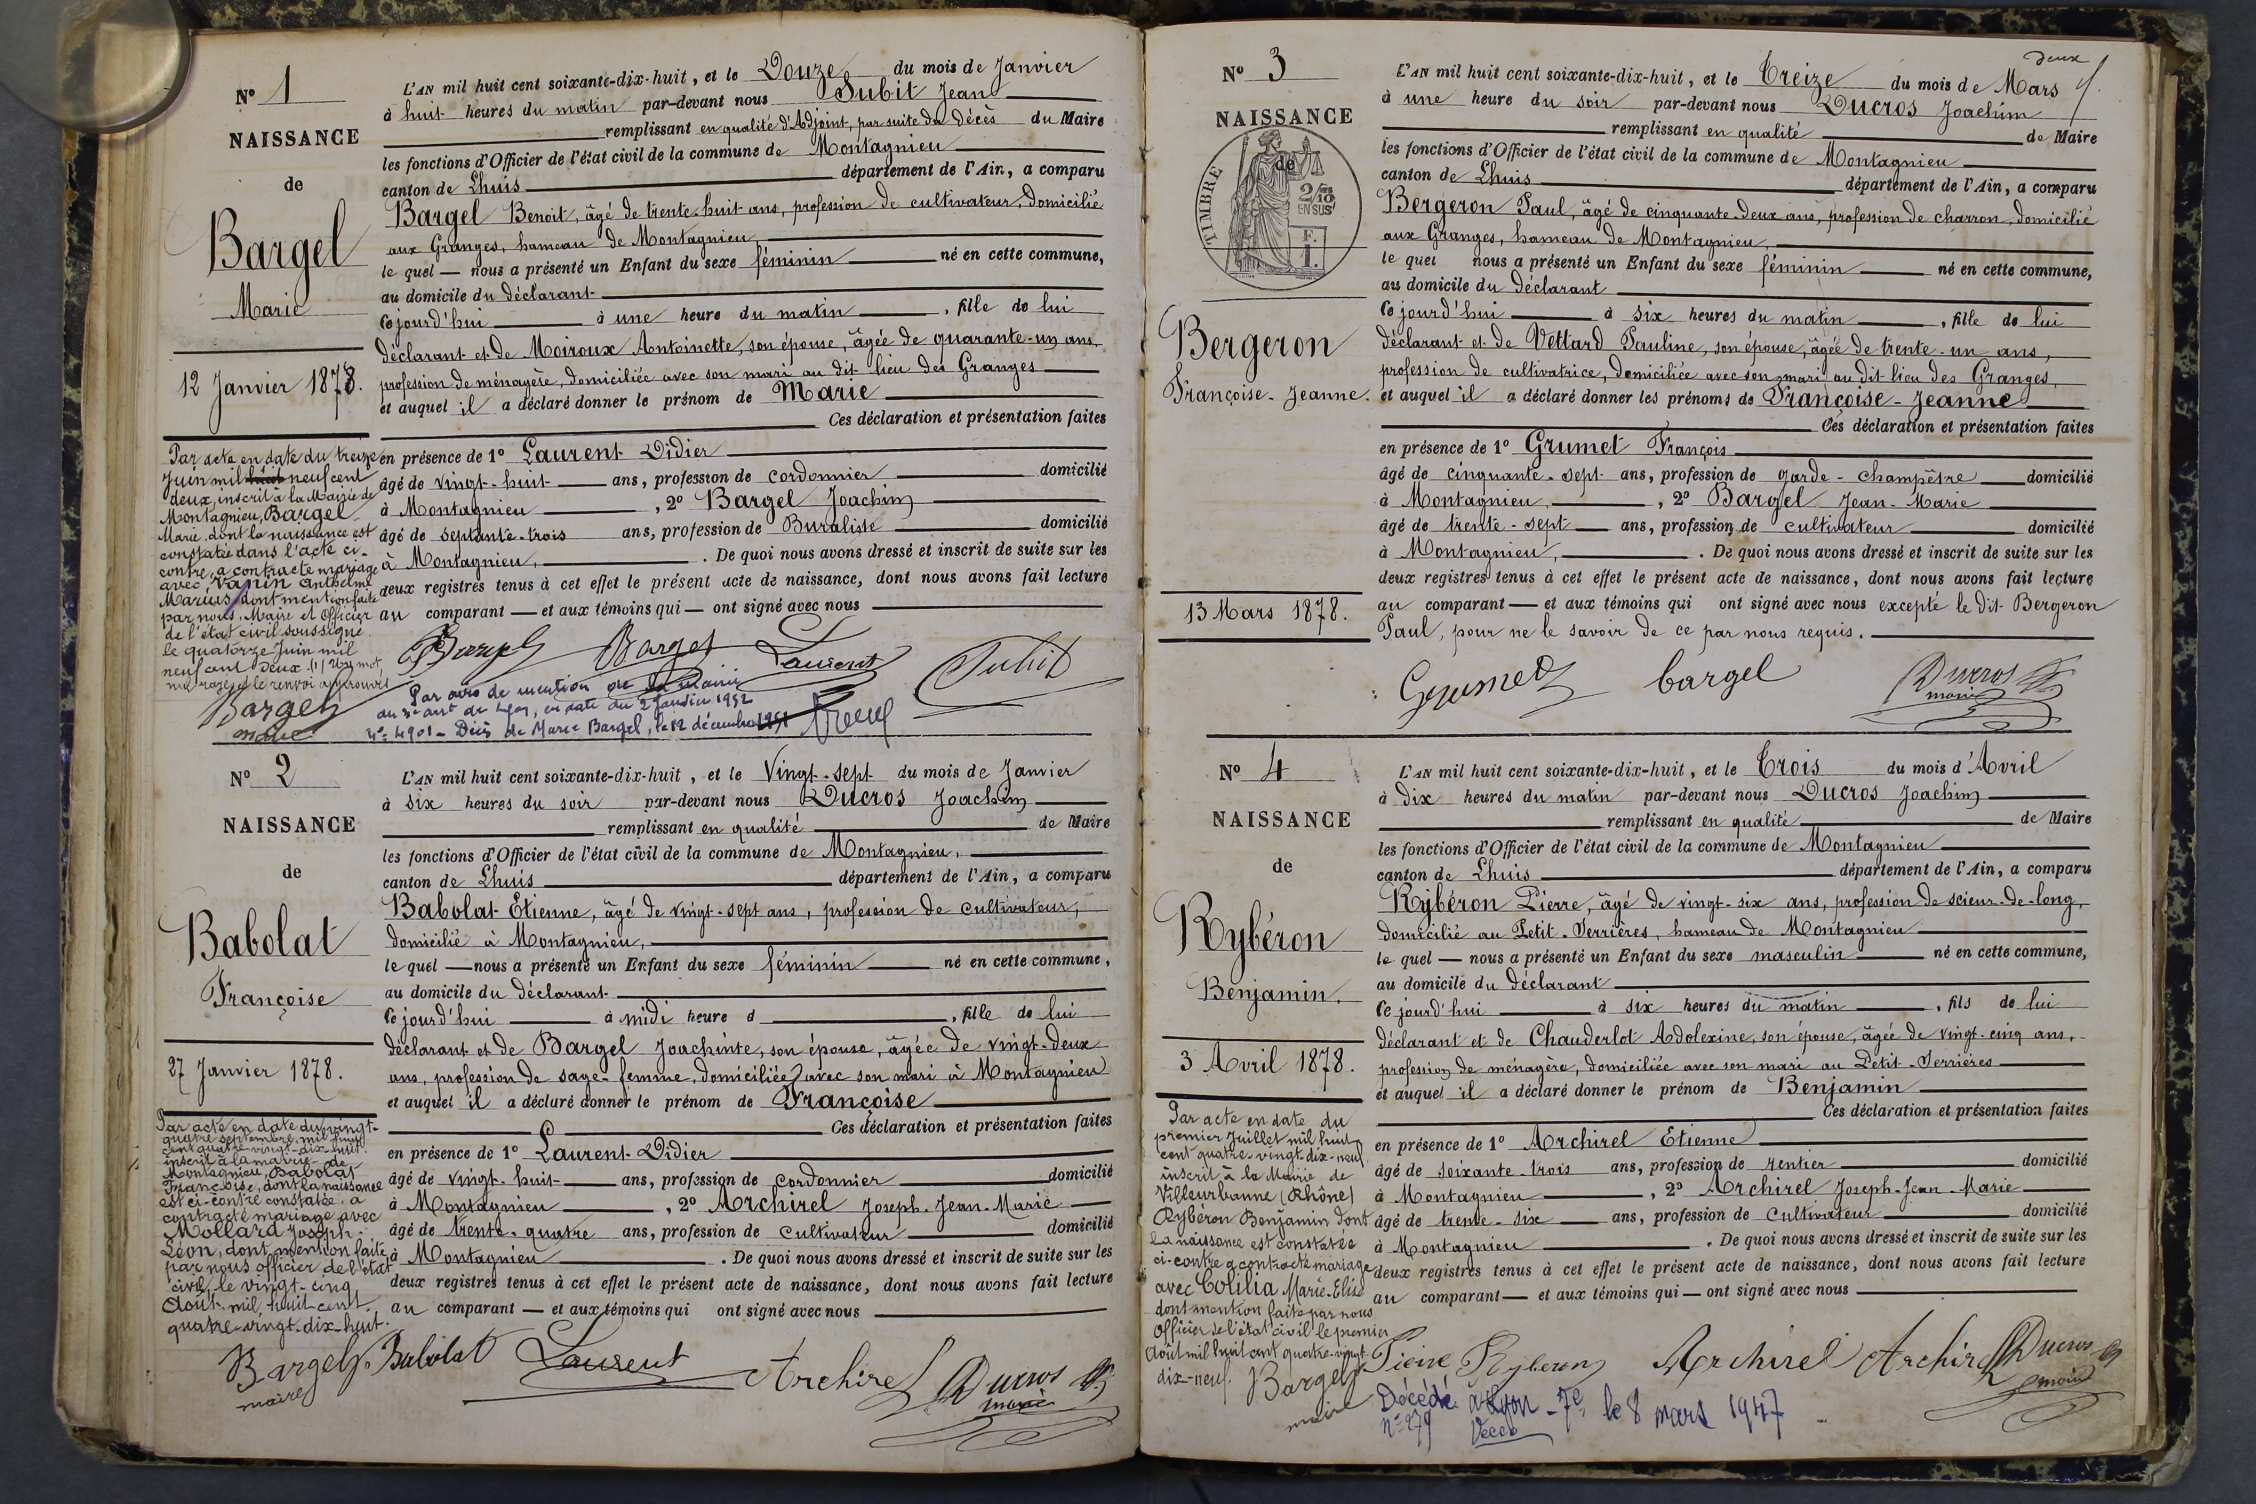 N° 1
NAISSANCE
de
Bargel
Marie
12 Janvier 1878.
Par acte en date du treize
Juin mil huit neuf cent
deux, inscrit à la Mairie de
Montagnieu, Bargel
Marie, dont la naissance est
constatée dans l'acte ci-
contre, a contracté mariage
avec Vanin Anthelme
Marius, dont mention faite
par nous, Maire et Officier
de l'état civil soussigné
le quatorze Juin mil
neuf cent deux. (1) Un mot
rayé et le renvoi approuvés
Bargel
maire
L'AN mil huit cent soixante-dix-huit, et le Douze du mois de Janvier
à huit heures du matin par-devant nous Subit Jean
remplissant en qualité d'Adjoint, par suite du décès du Maire
les fonctions d'Officier de l'état civil de la commune de Montagnieu
canton de Lhuis département de l'Ain, a comparu
Bargel Benoit, âgé de trente-huit ans, profession de cultivateur, domicilié
aux Granges, hameau de Montagnieu
le quel — nous a présenté un Enfant du sexe féminin né en cette commune,
au domicile du déclarant
Ce jourd'hui à une heure du matin, fille de lui
déclarant et de Moiroux Antoinette, son épouse, âgée de quarante-un ans,
profession de ménagère, domiciliée avec son mari au dit lieu des Granges
et auquel il a déclaré donner le prénom de Marie
Ces déclaration et présentation faites
en présence de 1° Laurent Didier
âgé de vingt-huit ans, profession de cordonnier domicilié
à Montagnieu, 2° Bargel Joachim
âgé de septante-trois ans, profession de Buraliste domicilié
à Montagnieu, . De quoi nous avons dressé et inscrit de suite sur les
deux registres tenus à cet effet le présent acte de naissance, dont nous avons fait lecture
au comparant — et aux témoins qui — ont signé avec nous
Bargel Bargel Laurent Subit
Par avis de mention de la mairie
du 3e arrt de Lyon, en date du 2 Janvier 1952
n° 4901 - Décès de Marie Bargel, le 12 décembre 1951
N° 2
NAISSANCE
de
Babolat
Françoise
27 Janvier 1878.
Par acte en date du vingt-
quatre septembre mil huit
cent quatre-vingt-dix-huit
inscrit à la mairie de
Montagnieu, Babolat
Françoise, dont la naissance
est ci-contre constatée, a
contracté mariage avec
Mollard Joseph-
Léon, dont mention faite
par nous officier de l'état
civil, le vingt-cinq
Août mil huit cent
quatre-vingt-dix-huit.
Bargel
maire
L'AN mil huit cent soixante-dix-huit, et le Vingt-sept du mois de Janvier
à six heures du soir par-devant nous Ducros Joachim
remplissant en qualité de Maire
les fonctions d'Officier de l'état civil de la commune de Montagnieu,
canton de Lhuis département de l'Ain, a comparu
Babolat Etienne, âgé de vingt-sept ans, profession de cultivateur,
domicilié à Montagnieu,
le quel — nous a présenté un Enfant du sexe féminin né en cette commune,
au domicile du déclarant
Ce jourd'hui à midi heure d , fille de lui
déclarant et de Bargel Joachinte, son épouse, âgée de vingt-deux
ans, profession de sage-femme, domiciliée avec son mari à Montagnieu
et auquel il a déclaré donner le prénom de Françoise
Ces déclaration et présentation faites
en présence de 1° Laurent Didier
âgé de vingt-huit ans, profession de Cordonnier domicilié
à Montagnieu, 2° Archirel Joseph-Jean-Marie
âgé de trente-quatre ans, profession de Cultivateur domicilié
à Montagnieu . De quoi nous avons dressé et inscrit de suite sur les
deux registres tenus à cet effet le présent acte de naissance, dont nous avons fait lecture
au comparant — et aux témoins qui ont signé avec nous
Babolat Laurent Archirel Ducros
maire
deux
N° 3
NAISSANCE
de
TIMBRE
2/10
EN SUS
F.
1.
Bergeron
Françoise-Jeanne.
13 Mars 1878.
L'AN mil huit cent soixante-dix-huit, et le Treize du mois de Mars
à une heure du soir par-devant nous Ducros Joachim
remplissant en qualité de Maire
les fonctions d'Officier de l'état civil de la commune de Montagnieu
canton de Lhuis département de l'Ain, a comparu
Bergeron Paul, âgé de cinquante-deux ans, profession de charron, domicilié
aux Granges, hameau de Montagnieu,
le quel nous a présenté un Enfant du sexe féminin né en cette commune,
au domicile du déclarant
Ce jourd'hui à six heures du matin, fille de lui
déclarant et de Vettard Pauline, son épouse, âgée de trente-un ans,
profession de cultivatrice, domiciliée avec son mari au dit lieu des Granges,
et auquel il a déclaré donner les prénoms de Françoise-Jeanne
Ces déclaration et présentation faites
en présence de 1° Grumet François
âgé de cinquante-sept ans, profession de garde-champêtre domicilié
à Montagnieu, 2° Bargel Jean-Marie
âgé de trente-sept ans, profession de cultivateur domicilié
à Montagnieu, . De quoi nous avons dressé et inscrit de suite sur les
deux registres tenus à cet effet le présent acte de naissance, dont nous avons fait lecture
au comparant — et aux témoins qui ont signé avec nous excepté le dit Bergeron
Paul, pour ne le savoir de ce par nous requis.
Grumet bargel Ducros
maire
N° 4
NAISSANCE
de
Rybéron
Benjamin.
3 Avril 1878.
Par acte en date du
premier Juillet mil huit
cent quatre-vingt-dix-neuf
inscrit à la Mairie de
Villeurbanne (Rhône)
Rybéron Benjamin dont
la naissance est constatée
ci-contre a contracté mariage
avec Colilia Marie-Elise
dont mention faite par nous
Officier de l'état civil le premier
Août mil huit cent quatre-vingt-
dix-neuf. Bargel
maire
L'AN mil huit cent soixante-dix-huit, et le Trois du mois d'Avril
à dix heures du matin par-devant nous Ducros Joachim
remplissant en qualité de Maire
les fonctions d'Officier de l'état civil de la commune de Montagnieu
canton de Lhuis département de l'Ain, a comparu
Rybéron Pierre, âgé de vingt-six ans, profession de scieur-de-long,
domicilié au Petit-Serrières, hameau de Montagnieu
le quel — nous a présenté un Enfant du sexe masculin né en cette commune,
au domicile du déclarant
Ce jourd'hui à six heures du matin, fils de lui
déclarant et de Chauderlot Adolexine, son épouse, âgée de vingt-cinq ans,
profession de ménagère, domiciliée avec son mari au Petit-Serrières
et auquel il a déclaré donner le prénom de Benjamin
Ces déclaration et présentation faites
en présence de 1° Archirel Etienne
âgé de soixante-trois ans, profession de rentier domicilié
à Montagnieu, 2° Archirel Joseph-Jean-Marie
âgé de trente-six ans, profession de Cultivateur domicilié
à Montagnieu . De quoi nous avons dressé et inscrit de suite sur les
deux registres tenus à cet effet le présent acte de naissance, dont nous avons fait lecture
au comparant — et aux témoins qui — ont signé avec nous
Pierre Ryberon Archirel Archirel Ducros
maire
Décédé à Lyon - 7e le 8 mars 1947
n° 279